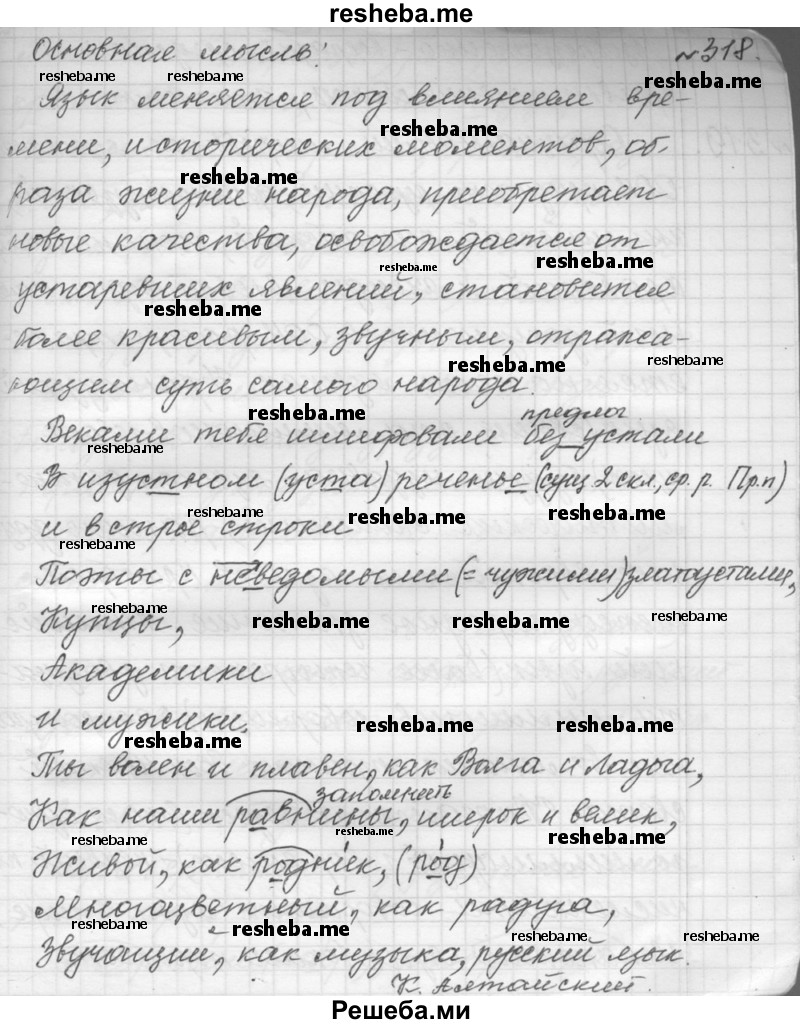 resheba.me
Основная мысль: №318.
resheba.me resheba.me resheba.me
Язык меняется под влиянием вре-
resheba.me
мени, исторических моментов, об-
resheba.me
раза жизни народа, приобретает
новые качества, освобождается от
resheba.me resheba.me
устаревших явлений, становится
resheba.me
более красивым, звучным, отража-
resheba.me resheba.me
ющим суть самого народа.
resheba.me предлог
Веками тебя шлифовали без устали
resheba.me
В изустном (уста) реченье (сущ 2 скл., ср. р. Пр.п)
resheba.me resheba.me resheba.me
и в строе строки
resheba.me
Поэты с неведомыми (= чужими) златоустами,
resheba.me resheba.me resheba.me resheba.me
Купцы,
Академики
и мужики.
resheba.me resheba.me resheba.me
Ты волен и плавен, как Волга и Ладога,
запомнить
Как наши равнины, широк и велик,
resheba.me resheba.me resheba.me
Живой, как родник, (род)
Многоцветный, как радуга,
resheba.me resheba.me resheba.me resheba.me
Звучащий, как музыка, русский язык.
К. Алтайский.
Решеба.ми